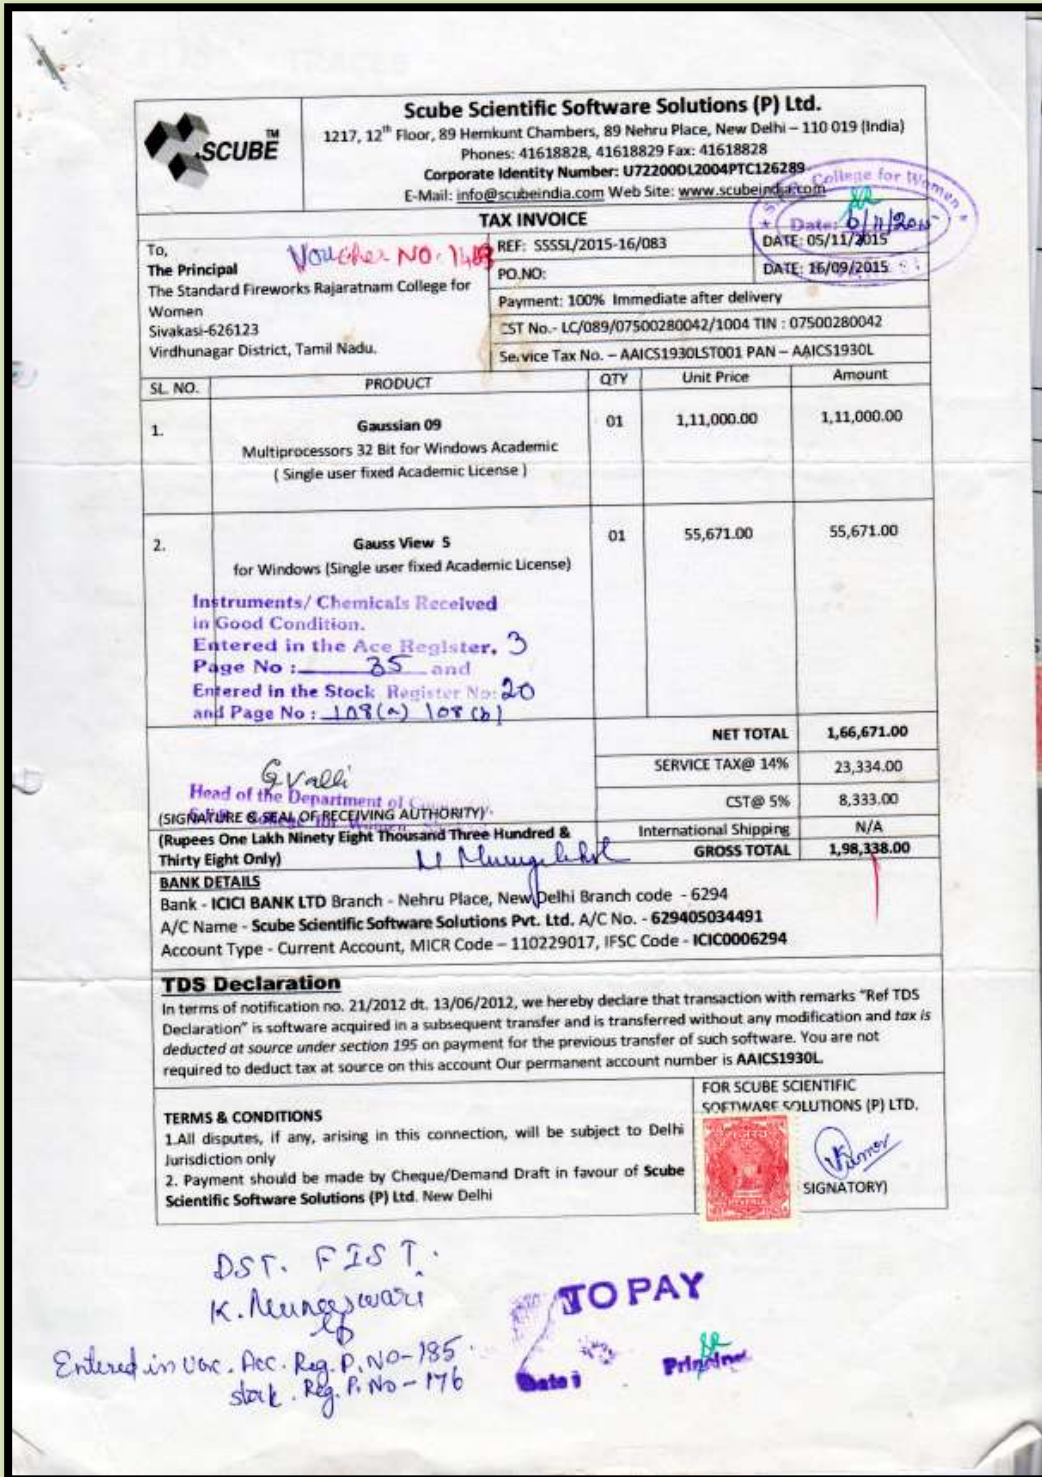 SCUBE TM
Scube Scientific Software Solutions (P) Ltd.
1217, 12th Floor, 89 Hemkunt Chambers, 89 Nehru Place, New Delhi – 110 019 (India)
Phones: 41618828, 41618829 Fax: 41618828
Corporate Identity Number: U72200DL2004PTC126289
E-Mail: info@scubeindia.com Web Site: www.scubeindia.com
College for Women
Date: 6/11/2015
TAX INVOICE
To,
Voucher NO. 1483
The Principal
The Standard Fireworks Rajaratnam College for
Women
Sivakasi-626123
Virdhunagar District, Tamil Nadu.
REF: SSSSL/2015-16/083 DATE: 05/11/2015
PO.NO: DATE: 16/09/2015
Payment: 100% Immediate after delivery
CST No.- LC/089/07500280042/1004 TIN : 07500280042
Service Tax No. – AAICS1930LST001 PAN – AAICS1930L
SL. NO. PRODUCT QTY Unit Price Amount
1. Gaussian 09 01 1,11,000.00 1,11,000.00
Multiprocessors 32 Bit for Windows Academic
( Single user fixed Academic License )
2. Gauss View 5 01 55,671.00 55,671.00
for Windows (Single user fixed Academic License)
Instruments/ Chemicals Received
in Good Condition.
Entered in the Ace Register. 3
Page No : 35 and
Entered in the Stock Register No: 20
and Page No : 108(a) 108(b)
NET TOTAL 1,66,671.00
SERVICE TAX@ 14% 23,334.00
G Valli
Head of the Department of
CST@ 5% 8,333.00
(SIGNATURE & SEAL OF RECEIVING AUTHORITY)
International Shipping N/A
(Rupees One Lakh Ninety Eight Thousand Three Hundred &
Thirty Eight Only)
GROSS TOTAL 1,98,338.00
BANK DETAILS
Bank - ICICI BANK LTD Branch - Nehru Place, New Delhi Branch code - 6294
A/C Name - Scube Scientific Software Solutions Pvt. Ltd. A/C No. - 629405034491
Account Type - Current Account, MICR Code – 110229017, IFSC Code - ICIC0006294
TDS Declaration
In terms of notification no. 21/2012 dt. 13/06/2012, we hereby declare that transaction with remarks "Ref TDS
Declaration" is software acquired in a subsequent transfer and is transferred without any modification and tax is
deducted at source under section 195 on payment for the previous transfer of such software. You are not
required to deduct tax at source on this account Our permanent account number is AAICS1930L.
TERMS & CONDITIONS
1.All disputes, if any, arising in this connection, will be subject to Delhi
Jurisdiction only
2. Payment should be made by Cheque/Demand Draft in favour of Scube
Scientific Software Solutions (P) Ltd. New Delhi
FOR SCUBE SCIENTIFIC
SOFTWARE SOLUTIONS (P) LTD.
SIGNATORY)
DST. FIST.
K. Muneeswari
Entered in Uac. Acc. Reg. P. NO-185.
stock. Reg. P. No - 176
TO PAY
Date :
Principal